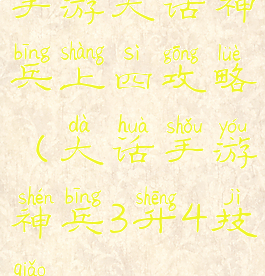 手游大话神
bīng shàng sì gōng lüè
兵上四攻略
dà huà shǒu yóu
（大话手游
shén bīng shēng jì
神兵3升4技
qiǎo